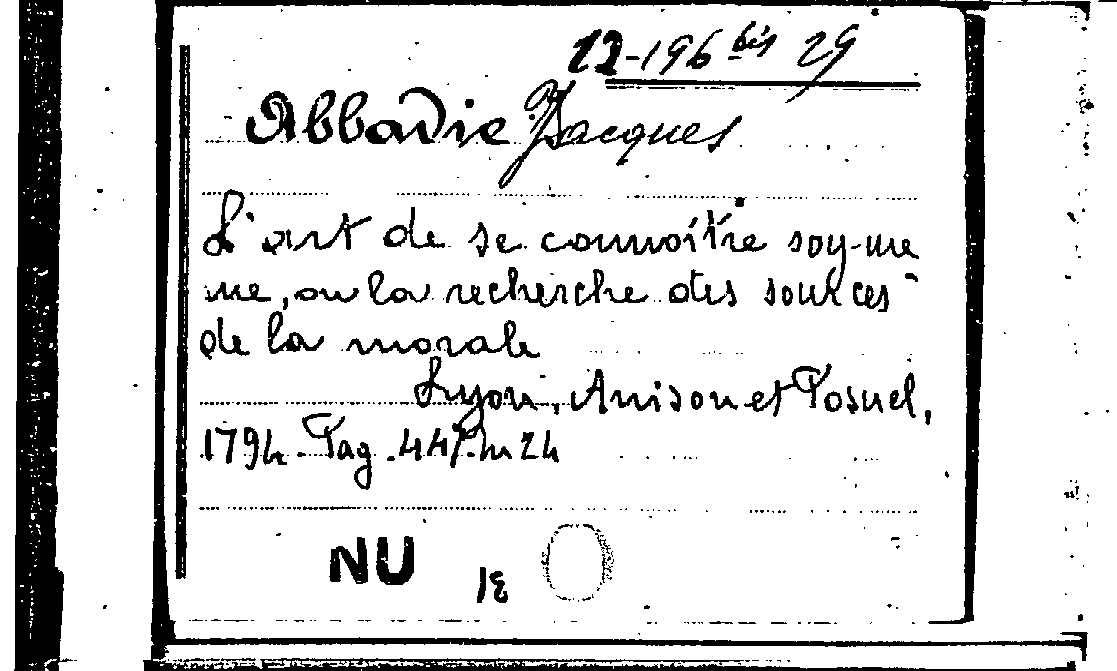 12-196 bis 29
Abbadie Jacques
L'art de se connoître soy-me
me, ou la recherche des sources
de la morale
Lyon, Anison et Posuel,
1794. Pag. 447. in 24
NU